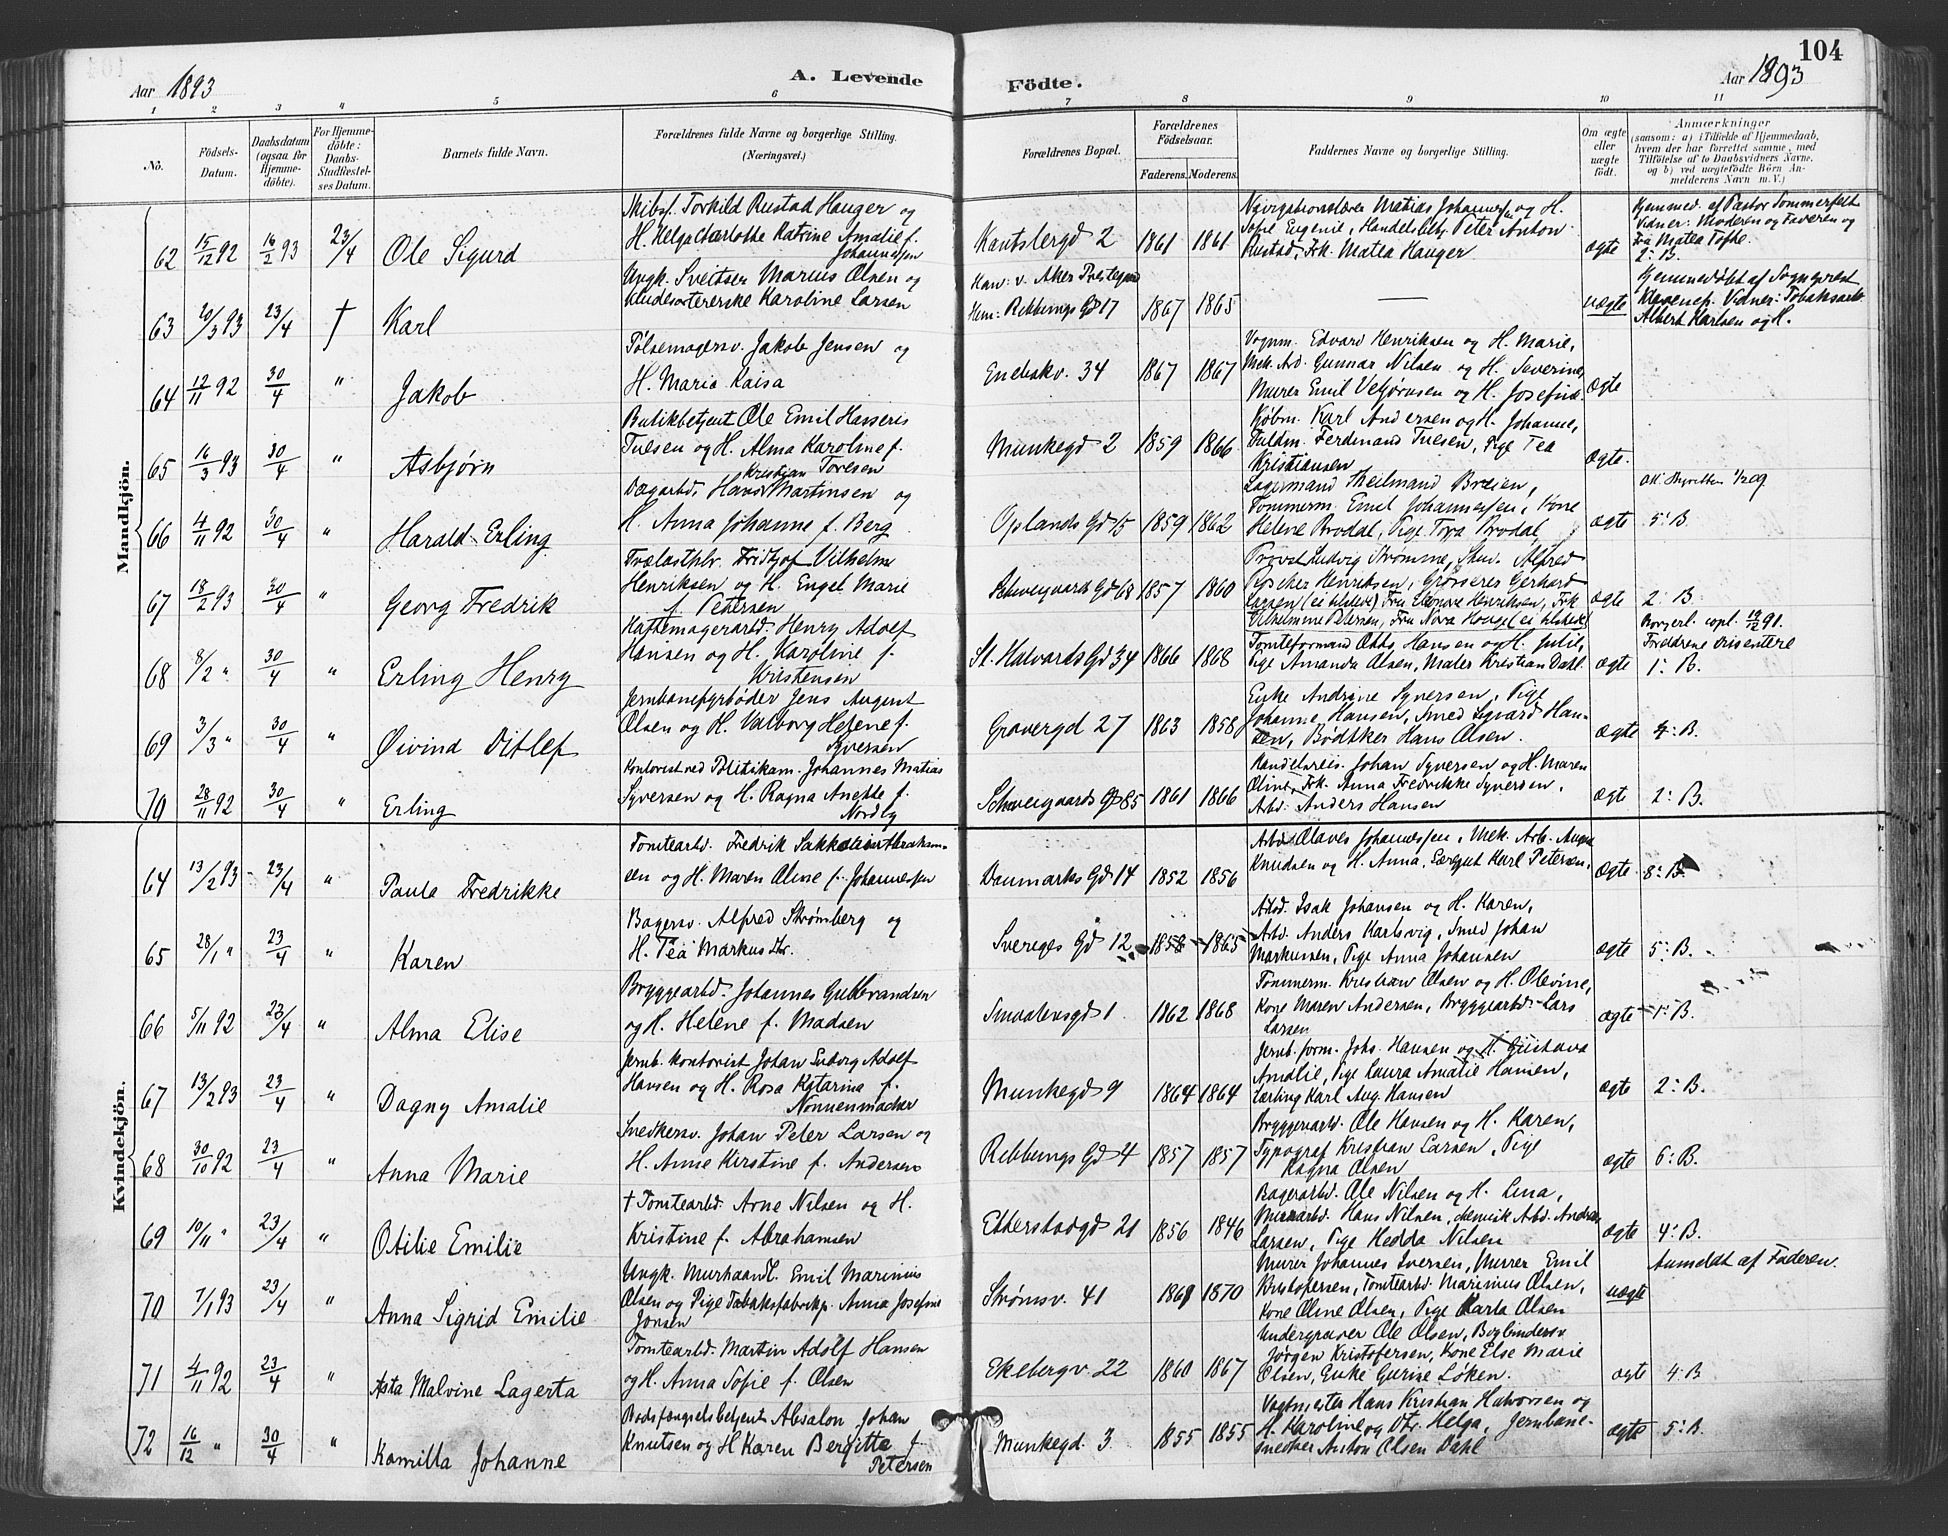 104
Aar 1893
A. Levende
Födte.
Aar 1893
1 2 3 4 5 6 7 8 9 10 11
No.
Födsels-
Datum.
Daabsdatum
(ogsaa for
Hjemme-
döbte).
For Hjemme-
döbte:
Daabs-
Stadfæstel-
ses Datum.
Barnets fulde Navn.
Forældrenes fulde Navne og borgerlige Stilling.
(Næringsvei.)
Forældrenes Bopæl.
Forældrenes
Födselsaar.
Faderens. Moderens.
Faddernes Navne og borgerlige Stilling.
Om ægte
eller
uægte
födt.
Anmærkninger
(saasom: a) i Tilfælde af Hjemmedaab,
hvem der har forrettet samme, med
Tilföielse af to Daabsvidners Navne.
og b) ved uægtefödte Börn An-
melderens Navn m. V.)
Mandkjön.
62 15/12 92 16/2 93 23/4 Ole Sigurd
Skibsf. Torkild Rustad Hauger og
H. Helga Charlotte Katrine Amalie f.
Johannesen
Kantslergd 2 1861 1861
Navigationslærer Matias Johannesen og H.
Sofie Eugenie, Handelsbetj. Peter Anton
Rustad, Frk. Matea Hauger
ægte
Hjemmed. af Pastor Sommerfelt
Vidner: Moderen og Faderen og
Fru Matea Tofte.
2: B.
63 20/3 93 23/4 † Karl
Ungk. Sveitser Marius Olsen og
Kludesortererske Karoline Larsen
Han: v. Aker Prestegaard
Hun: Rebbungs Gd 17 1867 1865
—
uægte
Hjemmedöbt af Sogneprest
Klavenes. Vidner: Tobaksarb.
Albert Karlsen og H.
64 12/11 92 30/4 " Jakob
Pølsemagersv. Jakob Jensen og
H. Maria Kaisa
Enebakv. 34 1867 1867
Vognm. Edvard Henriksen og H. Marie,
Mek. Arb. Gunnar Nilsen og H. Severine,
Murer Emil Vebjørnsen og H. Josefine
ægte
65 16/3 93 30/4 " Asbjørn
Butikbetjent Ole Emil Hanseris
Tuesen og H. Alma Karoline f.
Toresen
Munkegd 2 1859 1866
Kjøbm. Karl Andersen og H. Johanne,
Fuldm. Ferdinand Tuesen, Pige Tea
Kristiansen
ægte.
66 4/11 92 30/4 " Harald Erling
Dagarbd. Hans Kristian Martinsen og
H. Anna Johanne f. Berg
Oplands Gd 15 1859 1862
Lagermand Theilmand Breien,
Tømmerm. Emil Johannessen, Kone
Helene Brodal, Pige Tora Brodal
ægte 5: B.
67 18/2 93 30/4 " Georg Fredrik
Trælasthlr. Fridtjof Vilhelm
Henriksen og H. Engel Marie
f. Petersen
Schweigaards Gd 68 1857 1860
Ludvig Strømme, Alfred
Henriksen, Grosserer Gerhard
Larsen (ei tilstede), Fru Elenore Henriksen, Frk.
Vilhelmine Petersen, Fru Nora Hougel (ei tilstede)
ægte 2: B.
68 8/2 " 30/4 " Erling Henry
Kaffemagerarbd. Henry Adolf
Hansen og H. Karoline f.
Kristensen
St. Halvards Gd 34 1866 1868
Tomteformand Otto Hansen og H. Julie,
Pige Amanda Olsen, Maler Kristian Dahl.
ægte
Borgerl. copl. 19/12 91.
Forældrene dissentere
1: B.
69 3/3 " 30/4 " Øivind Ditlef
Jernbanefyrbøder Jens August
Olsen og H. Valborg Helene f.
Syversen
Grovergd 27 1863 1858
Enke Andrine Syversen, Pige
Johanne Hansen, Smed Sigvard Han-
sen, Bødtker Hans Olsen.
ægte 4: B.
70 28/11 92 30/4 " Erling
Kontorist ved Politikam. Johannes Matias
Syversen og H. Ragna Anette f.
Nordby
Schweigaards Gd 85 1861 1866
Handelsreis. Johan Syversen og H. Maren
Oline, Frk. Anna Fredrikke Syversen,
Arbd. Anders Hansen
ægte 2: B.
Kvindekjön.
64 13/2 93 23/4 " Paula Fredrikke
Tomtearbd. Fredrik Sakkarias Abraham-
sen og H. Maren Oline f. Johannessen
Danmarks Gd 14 1852 1856
Arbd. Olaves Johannessen, Mek. Arb. August
Knudsen og H. Anna, Karl Petersen,
ægte. 8: B.
65 28/1 " 23/4 " Karen
Bagersv. Alfred Strømberg og
H. Tea Markusdtr.
Svereges Gd 12 1858 1865
Arbd. Isak Johansen og H. Karen,
Arbd. Anders Karlsvig, Smed Johan
Markussen, Pige Anna Johansen
ægte 5: B.
66 5/11 92 23/4 " Alma Elise
Bryggearbd. Johannes Gulbrandsen
og H. Helene f. Madsen
Smaalensgd 1 1862 1868
Tømmerm. Kristian Olsen og H. Olevine,
Kone Maren Andersen, Bryggearbd. Lars
Larsen
ægte 1: B.
67 13/2 93 23/4 " Dagny Amalie
Jernb. kontorist Johan Ludvig Adolf
Hansen og H. Rosa Katarina f.
Nonnenmacher
Munkegd 9 1864 1864
Jernb. form. Johs. Hansen og H. Gustava
Amalie, Pige Laura Amalie Hansen,
Lærling Karl Aug. Hansen
ægte 2: B.
68 30/10 92 23/4 " Anna Marie
Snedkersv. Johan Peter Larsen og
H. Anne Kirstine f. Andersen
Rebbungs Gd 4 1857 1857
Bryggeriarbd. Ole Hansen og H. Karen,
Typograf Kristian Larsen, Pige
Ragna Olsen
ægte 6: B.
69 10/11 " 23/4 " Otilie Emilie
† Tomtearbd. Arne Nilsen og H.
Kristine f. Abrahamsen
Etterstadgd 21 1856 1846
Bagerarbd. Ole Nilsen og H. Lina,
Murarbd. Hans Nilsen, kemisk Arbd. Andreas
Larsen, Pige Hedda Nilsen
ægte 4: B.
70 7/1 93 23/4 " Anna Sigrid Emilie
Ungk. Murhaandl. Emil Marinius
Olsen og Pige Tabaksfabrikp. Anna Josefine
Jonsen
Strømsv. 41 1869 1870
Murer Johannes Iversen, Murer Emil
Kristofersen, Tomtearbd. Marinius Olsen,
Kone Oline Olsen, Pige Karla Olsen
uægte
Anmeldt af Faderen.
71 4/11 92 23/4 " Asta Malvine Lagerta
Tomtearbd. Martin Adolf Hansen
og H. Anna Sofie f. Olsen
Ekebergv. 22 1860 1867
Undergraver Ole Olsen, Bogbindersv.
Jørgen Kristofersen, Kone Else Marie
Olsen, Enke Gurine Løken.
ægte 4: B
72 16/12 " 30/4 " Kamilla Johanne
Bodsfængselsbetjent Absalon Johan
Knutsen og H Karen Bergitte f.
Petersen
Munkegd. 3 1855 1855
Vagtmester Hans Kristian Halvorsen og
H. Karoline og Dtr. Helga, Jernbane-
snedker Anton Olsen Dahl
ægte 5: B.